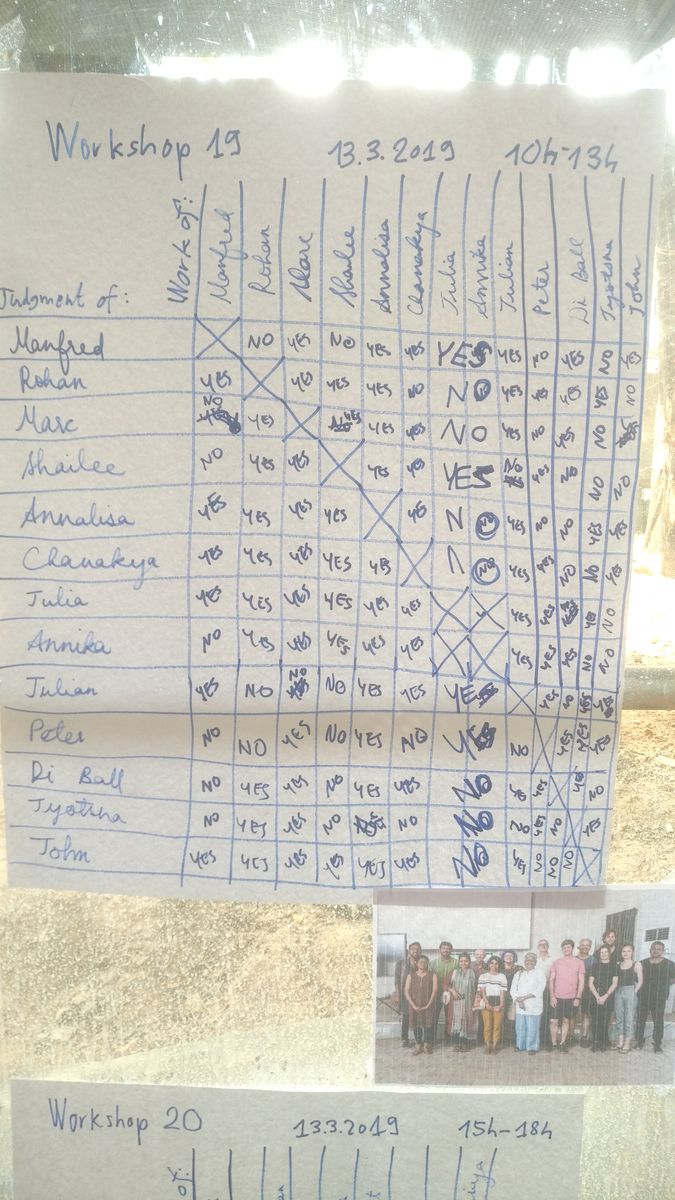 Workshop 19 13.3.2019 10h-13h
Judgment of: Work of: Manfred Rohan Marc Shailee Annalisa Chanakya Julia Annika Julian Peter Di Ball Jyotsna John
Manfred NO YES NO YES YES YES YES NO YES NO YES
Rohan YES YES YES YES NO NO YES YES YES NO
Marc YES YES YES NO YES NO YES NO
Shailee NO YES YES YES YES YES YES NO NO NO
Annalisa YES YES YES YES YES YES NO NO YES YES
Chanakya YES YES YES YES YES NO YES YES NO NO YES
Julia YES YES YES YES YES YES YES YES YES NO
Annika NO YES YES YES YES YES YES YES YES NO NO
Julian YES NO NO YES YES YES YES NO YES
Peter NO NO YES NO YES NO YES NO YES YES YES
Di Ball NO YES YES NO YES YES NO YES YES NO
Jyotsna NO YES YES NO NO NO NO YES NO YES
John YES YES YES YES YES YES NO YES NO NO NO
Workshop 20 13.3.2019 15h-18h
of: